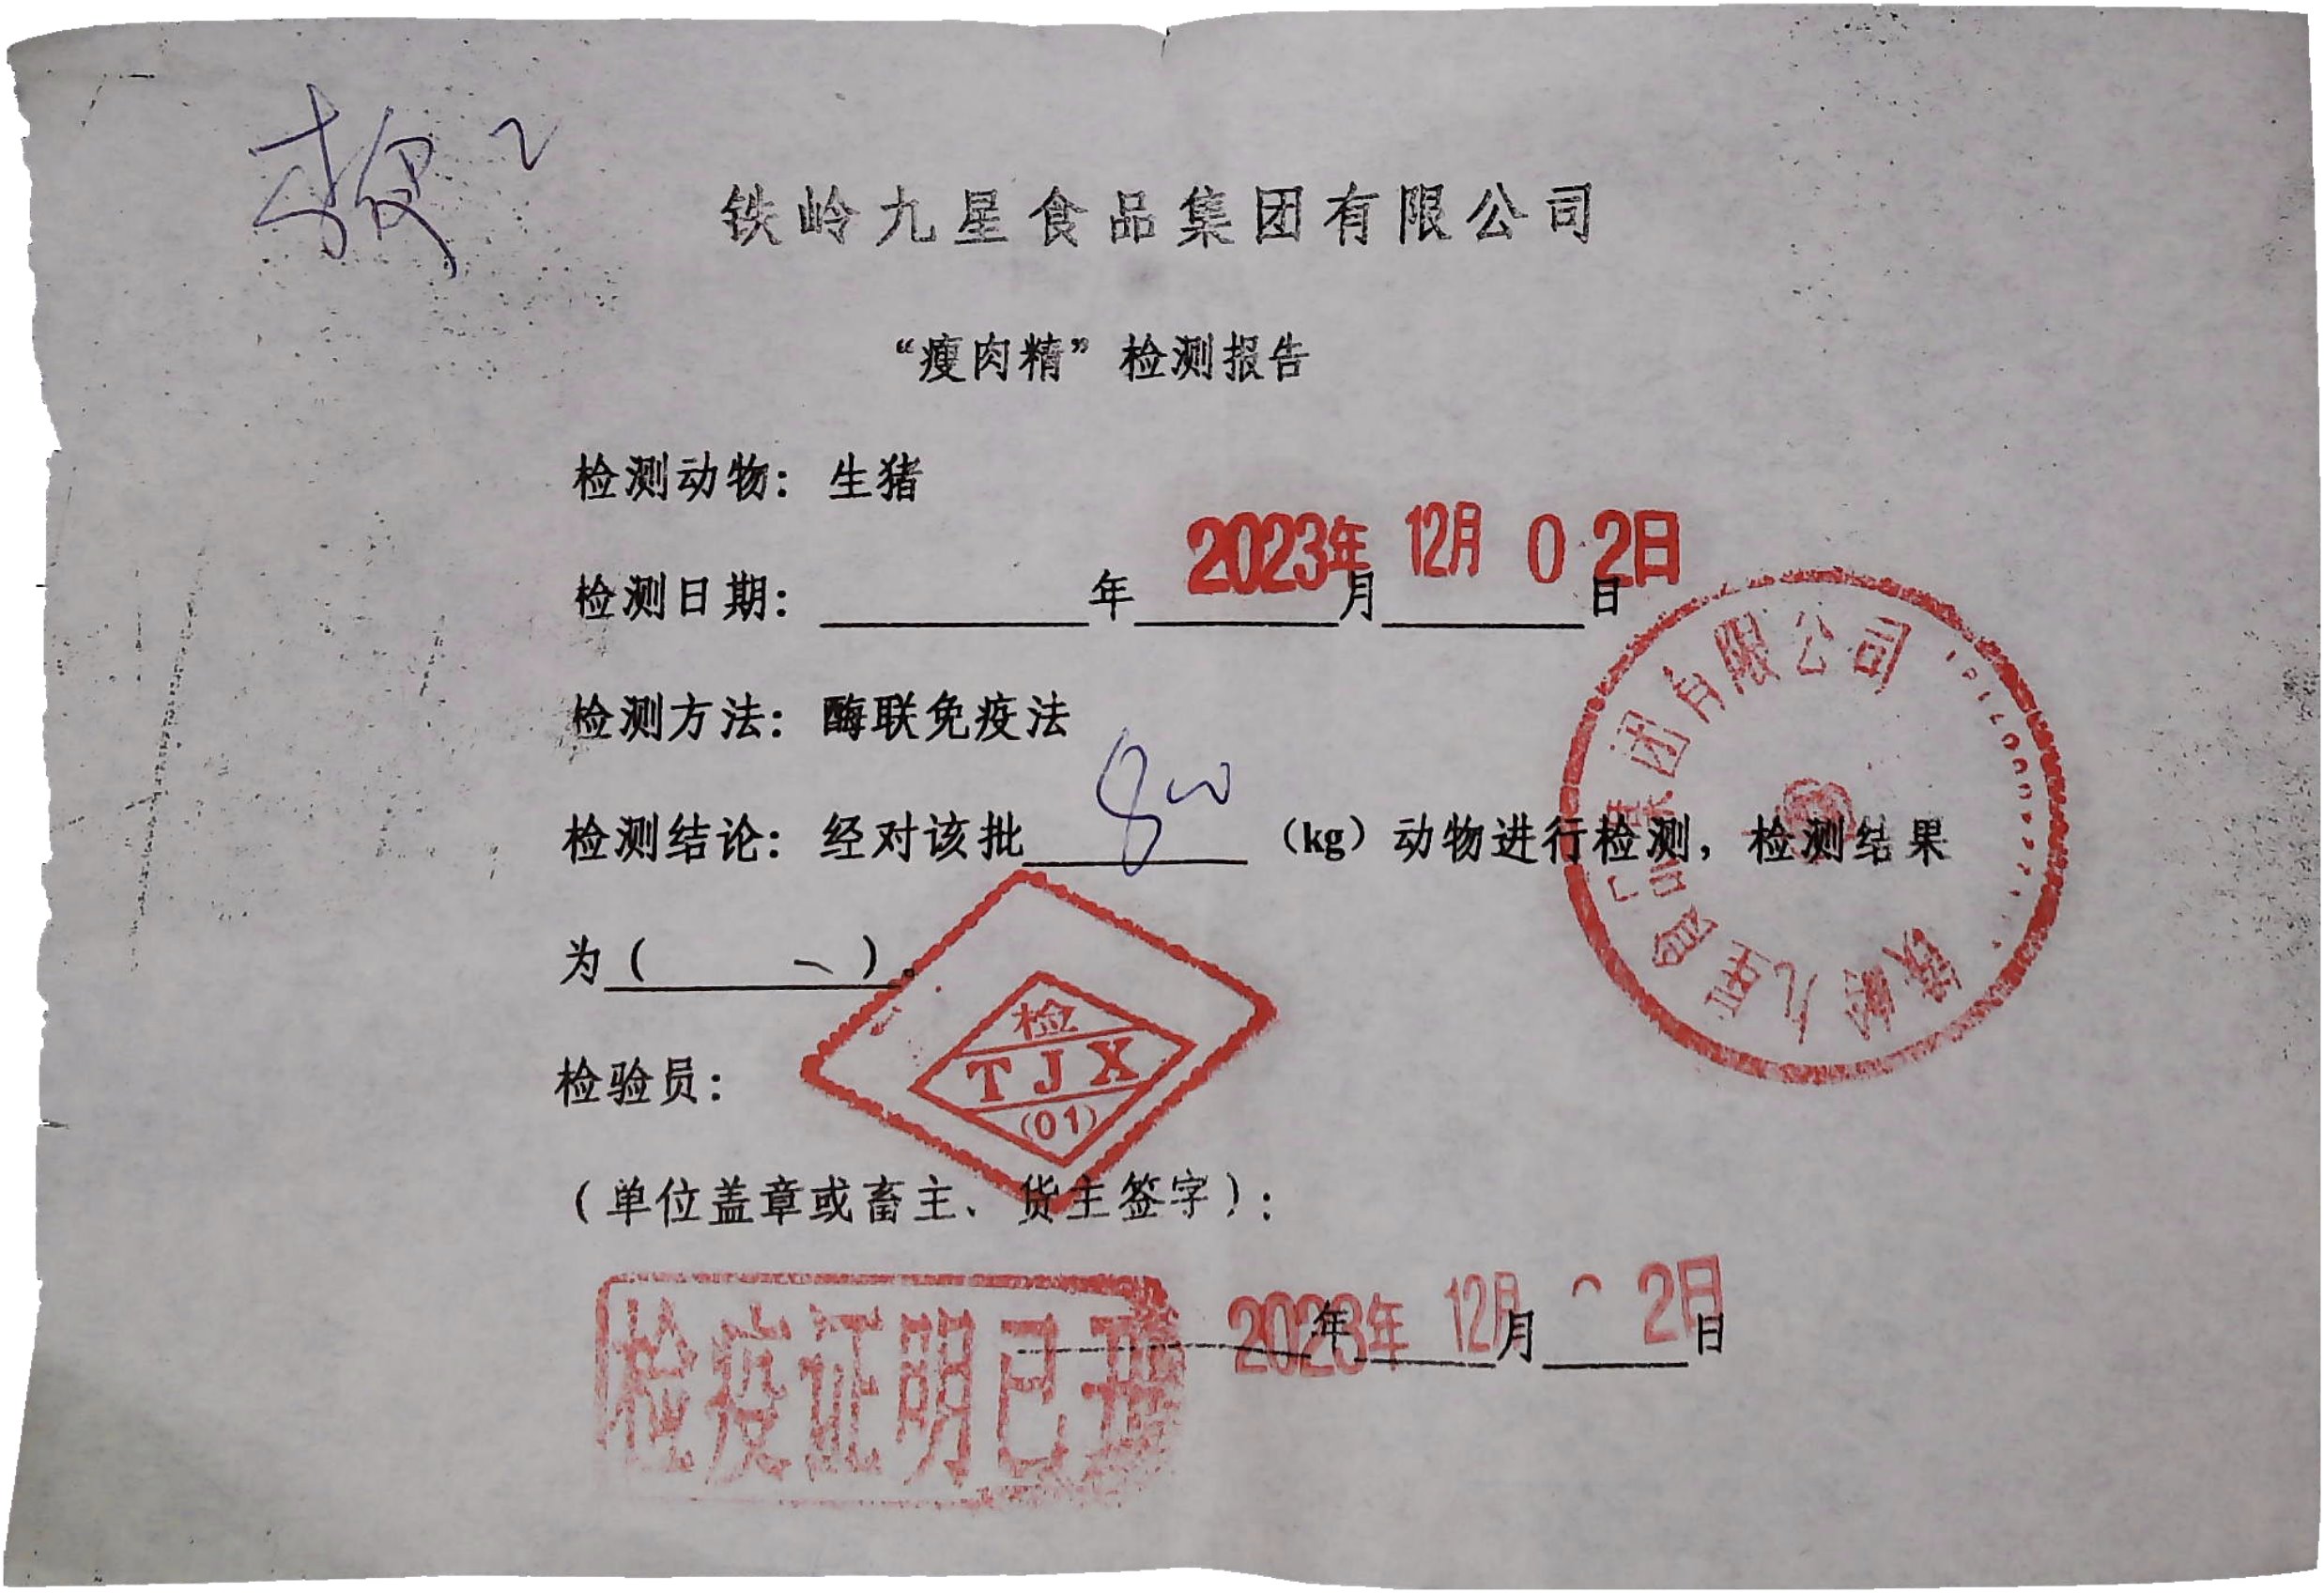 铁岭九星食品集团有限公司
“瘦肉精”检测报告
检测动物：生猪
检测日期：年月日
2023年 12月 0 2日
检测方法：酶联免疫法
检测结论：经对该批 800 （kg）动物进行检测，检测结果
为（ ）。
检验员：
检
TJX
(01)
铁岭九星食品集团有限公司
（单位盖章或畜主、货主签字）：
年月日
2023年 12月 2日
检疫证明已开